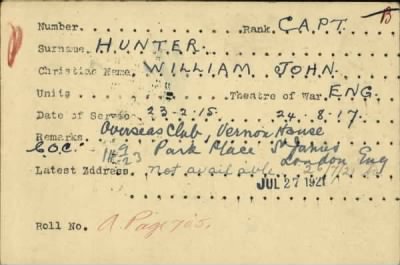 B
Number. Rank. CAPT.
Surname. HUNTER.
Christian Name. WILLIAM JOHN.
Units Theatre of War. ENG.
Date of Service 23-2-15. 24.8.17.
Remarks. Overseas Club, Vernon House
C.O.C. Park Place St James
London Eng
Latest Address. Not available
JUL 27 1921
Roll No. A. Page 705.